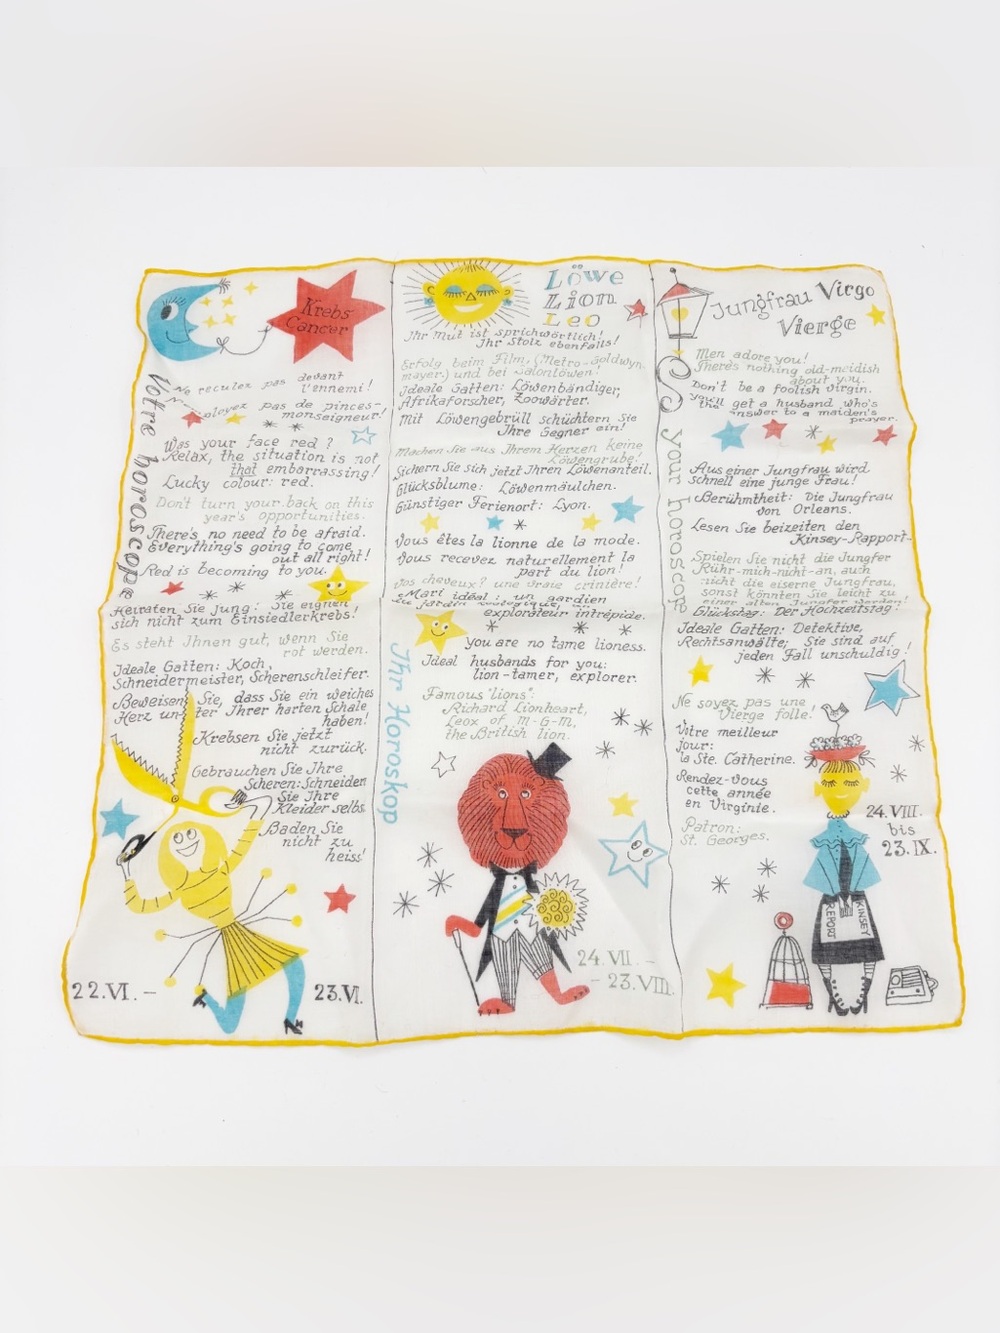 Krebs
Cancer
Votre horoscope
Ne reculez pas devant
l'ennemi!
N'employez pas de pinces-
monseigneur!
Was your face red?
Relax, the situation is not
that embarrassing!
Lucky colour: red.
Don't turn your back on this
year's opportunities.
There's no need to be afraid.
Everything's going to come
out all right!
Red is becoming to you.
Heiraten Sie jung: Sie eignen
sich nicht zum Einsiedlerkrebs!
Es steht Ihnen gut, wenn Sie
rot werden.
Ideale Gatten: Koch,
Schneidermeister, Scherenschleifer.
Beweisen Sie, dass Sie ein weiches
Herz unter Ihrer harten Schale
haben!
Krebsen Sie jetzt
nicht zurück.
Gebrauchen Sie Ihre
Scheren: Schneiden
Sie Ihre
Kleider selbs
Baden Sie
nicht zu
heiss!
22.VI. –
23.VI.
Löwe
Lion
Leo
Ihr Mut ist sprichwörtlich!
Ihr Stolz ebenfalls!
Erfolg beim Film, (Metro-Goldwyn
mayer) und bei Salonlöwen!
Ideale Gatten: Löwenbändiger,
Afrikaforscher, Zoowärter.
Mit Löwengebrüll schüchtern Sie
Ihre Gegner ein!
Machen Sie aus Ihrem Herzen keine
Löwengrube!
Sichern Sie sich jetzt Ihren Löwenanteil.
Glücksblume: Löwenmäulchen.
Günstiger Ferienort: Lyon.
Vous êtes la lionne de la mode.
Vous recevez naturellement la
part du lion!
Vos cheveux? une vraie crinière!
Mari idéal: un gardien
du jardin zoologique,
explorateur intrépide.
Ihr Horoskop
you are no tame lioness.
Ideal husbands for you:
lion-tamer, explorer.
Famous "lions":
Richard Lionheart,
Leox of M-G-M,
the British lion.
24.VII. –
– 23.VIII.
Jungfrau Virgo
Vierge
your horoscope
Men adore you!
There's nothing old-meidish
about you.
Don't be a foolish virgin.
You'll get a husband who's
the answer to a maiden's
prayer.
Aus einer Jungfrau wird
schnell eine junge Frau!
Berühmtheit: Die Jungfrau
von Orleans.
Lesen Sie beizeiten den
Kinsey-Rapport
Spielen Sie nicht die Jungfer
Rühr-mich-nicht-an, auch
nicht die eiserne Jungfrau,
sonst könnten Sie leicht zu
einer alten Jungfer werden!
Glückstag: Der Hochzeitstag!
Ideale Gatten: Detektive,
Rechtsanwälte, Sie sind auf
jeden Fall unschuldig!
Ne soyez pas une
Vierge folle!
Votre meilleur
jour:
la Ste. Catherine.
Rendez-vous
cette année
en Virginie.
Patron:
St. Georges.
24.VIII.
bis
23.IX.
KINSEY
REPORT